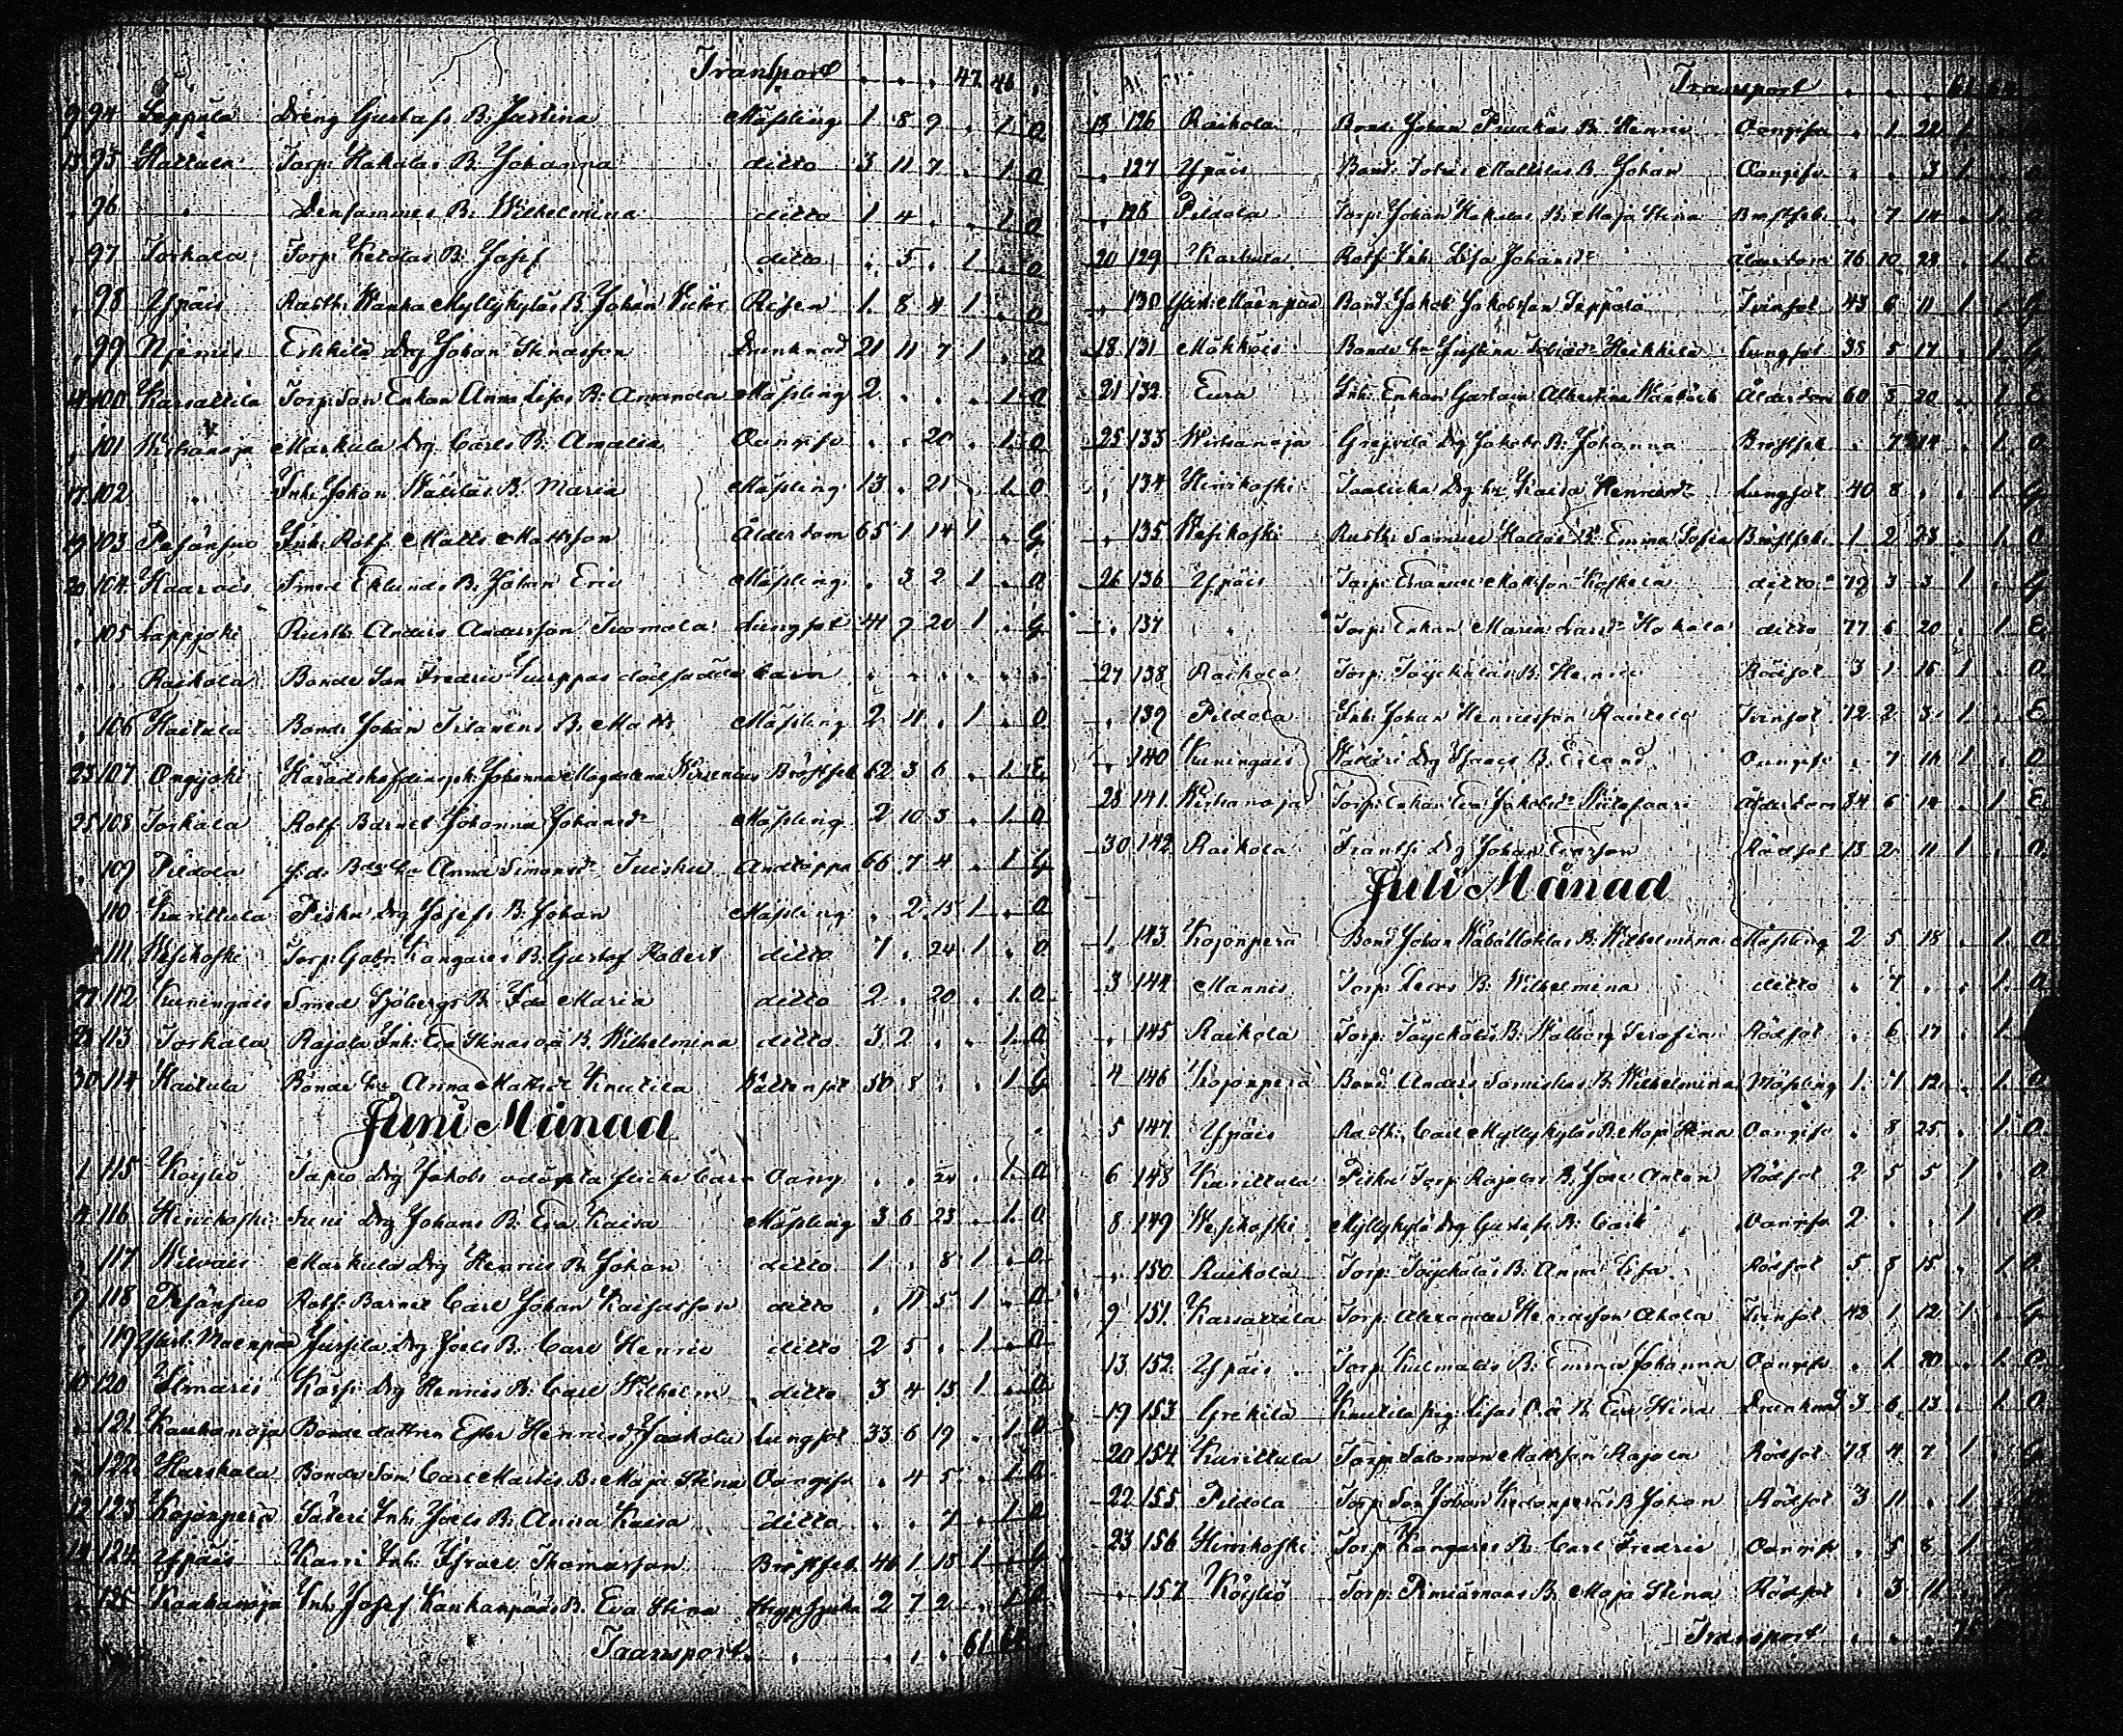 Transport . . . 47 46
9 94 Seppälä Dreng Gustafs B. Justina Mäßling 1 8 9 . 1. O
13 95 Hattula Torp: Hakalas B. Johanna ditto 3 11 7 . 1. O
. 96 . Densammes B. Wilhelmina ditto 1 4 . . 1. O
. 97 Torkala Torp: Ketolas B. Josef ditto . 5 . 1 . O
. 98 Ypäis Rusth: Wanha Myllykyläs B. Johan Victor Risen 1. 8 4 1 . O
. 99 Erkkilä Drg Johan Stinasson Drunknad 21 11 7 1 . O
14 100 Karsattila Torp: Son Enkan Anna Lisas B. Amanda Mäßling 2 . . . 1. O
. 101 Wirtanoja Markula Drg Carls B. Amalia Oangifv . . 20 . 1. O
17 102 . Inh: Johan Wäliläs B. Maria Mäßling 13 . 21 . 1. O
19 103 Pesänsuo Inh: Rotf. Matts Mattsson Ålderdom 65 1 14 1 . G
20 104 Haarois Smed Eklunds B. Johan Eric Mäßling . 3 2 1 . O
. 105 Lappjoki Rusth: Anders Andersson Tuomola Lungsot 41 9 20 1 . G
. . Raikola Bonde Son Fredric dödfödda barn . . . . . .
. 106 Haitula Bond: Johan B. Matts Mäßling 2 11 . 1 . O
23 107 Ongjoki Häradshöfdingsk: Johanna Magdalena Bröstfeb 62 3 6 . 1. E
25 108 Torkala Rotf. Barnet Johanna Johansdr Mäßling 2 10 3 . 1. O
. 109 Pildola f:d: Anna Simonsdr Tuiskus Andtäppa 66 7 4 . 1 G
. 110 Kurittula Piskü Drg Josefs B. Johan Mäßling . 2 15 1 . O
111 Wesikoski Torp: Gabr: Kangares B. Gustaf Robert ditto 7 . 24 1 . O
27 112 Kuningais Smed Sjöbergs B. Ida Maria ditto 2 . 20 . 1. O
28 113 Torkala Rajala Inh: Eva Stinas oä B. Wilhelmina ditto 3 2 . . 1. O
30 114 Haitula Bonde hu Anna Mattsdr Knuutila 50 8 . . 1 G
Juni Månad
1 115 Köyliö Drg Jakobs odöpta flicke barn Oang . . 24 . 1. O
4 116 Hinikoski Suni Drg Johans B. Eva Kaisa Mäßling 3 6 23 . 1. O
. 117 Hilvais Markula Drg Henrics B. Johan ditto 1 . 8 1 . O
9 118 Pesänsuo Rotf. Barnet Carl Johan Kaisasson ditto . 11 5 1 . O
. 119 Yhist. Mäenpää Jussila Drg Joels B. Carl Henric ditto 2 5 . 1 . O
10 120 Ilmaris Drg Henrics B. Carl Wilhelm ditto 3 4 13 1 . O
. 121 Kauhanoja Bonde dottren Ester Henricsdr Jaakola Lungsot 33 6 19 . 1. O
. 122 Harskala Bonde Son Carl Martis B. Maja Stina Oangifv . 4 5 . 1. O
12 123 Kojonperä Säteri Inh: Joels B. Anna Kaisa ditto . . 7 . 1. O
14 124 Ypäis Karri Inh: Israel Thomasson Bröstfeb. 46 1 18 1 . G
. 125 Kauhanoja Inh: Josef Kauhanpääs B. Eva Stina 2 7 2 . 1. O
Transport. . . . 61 64
Transport . . . 61 64
18 126 Raikola Bond: Johan B. Henric Oangifv . 1 22 1 .
. 127 Ypäis Bond: Tobias Mattilas B. Johan Oangifv . . 3 1 . O
. 128 Pildola Torp: Johan Hakalas B. Maja Stina Bröstfeb. . 7 14 . 1. O
20 129 Karhula Rotf: Inh: Lisa Johansdr Ålderdom 76 10 28 . 1. E
. 130 Yhist: Mäenpää Bond: Jakob Jakobsson Seppälä Tvinsot 43 6 11 1 . G
18 131 Mäkköis Bonde hu Justina Tobiasdr Heikkilä Lungsot 38 5 17 . 1. G
21 132 Eura Inh: Enkan Gustava Albertina Ålderdom 60 5 20 . 1. E
25 133 Wirtanoja Greivilä Drg Jakobs B. Johanna Bröstfeb . 7 14 . 1. O
. 134 Hinikoski Drg hu Kaisa Henricsdr Lungsot 40 8 . . 1. G
. 135 Wesikoski Rusth: Samuel B. Emma Sofia Bröstfeb. 1 2 23 . 1. O
26 136 Ypäis Torp: Emanuel Mattsson Koskela ditto 79 3 3 1 . G
. 137 . Torp: Enkan Maria Larsdr Hakala ditto 77 6 20 . 1. E
27 138 Raikola Torp: Töyckäläs B. Henric Rödsot 3 1 16 1 . O
. 139 Pildola Inh: Johan Henricsson Rautila Tvinsot 72 2 3 1 . E
. 140 Kuningais Drg Isaacs B. Erland Oangifv . 7 16 1 . O
28 141 Wirtanoja Torp: Enkan Eva Jakobsdr Ålderdom 84 6 14 . 1. E
30 142 Raikola Frantsi Drg Johan Ericsson Rödsot 13 2 11 1 . O
Juli Månad
1. 143 Kojonperä Bond: Johan B. Wilhelmina Mäßling 2 5 18 . 1. O
3 144 Mannis Torp: B. Wilhelmina ditto . 7 . . 1. O
. 145 Raikola Torp: Töyckäläs B. Walborg Serafina Rödsot . 6 17 . 1.
4 146 Kojonperä Bond: Anders B. Wilhelmina Mäßling 1. 7 12 . 1. O
5 147 Ypäis Rusth: Carl Myllykyläs B. Maja Stina Oangifv . 8 25 . 1. O
6 148 Kurittula Piskü Torp: Rajalas B. Joel Anton Rödsot 2 5 5 1 . O
8 149 Wesikoski Myllykylä Drg Gustafs B. Carl Oangifv 2 . . 1 . O
. 150 Raikola Torp: Töyckäläs B. Anna Lisa Rödsot 5 8 15 . 1. O
9 151. Karsattila Torp: Alexander Henricsson Ahola Tvinsot 42 1 12 1 . G
13 152. Ypäis Torp: B. Emma Johanna Oangifv . 1 20 . 1. O
19 153 Grekilä Knuutila Pig: Lisas Oä B. Eva Stina Drunknad 3 6 13 . 1. O
20 154. Kurittula Torp: Salomon Mattsson Rajala Rödsot 78 4 7 1 . G
22 155. Pildola Torp: Son Johan B. Johan Rödsot 3 11 . 1 .
23 156 Hinikoski Torp: Kangares B. Carl Fredric Oangifv . 5 8 1 .
. 157 Köyliö Torp: B. Maja Stina Rödsot . 3 11
Transport . . .